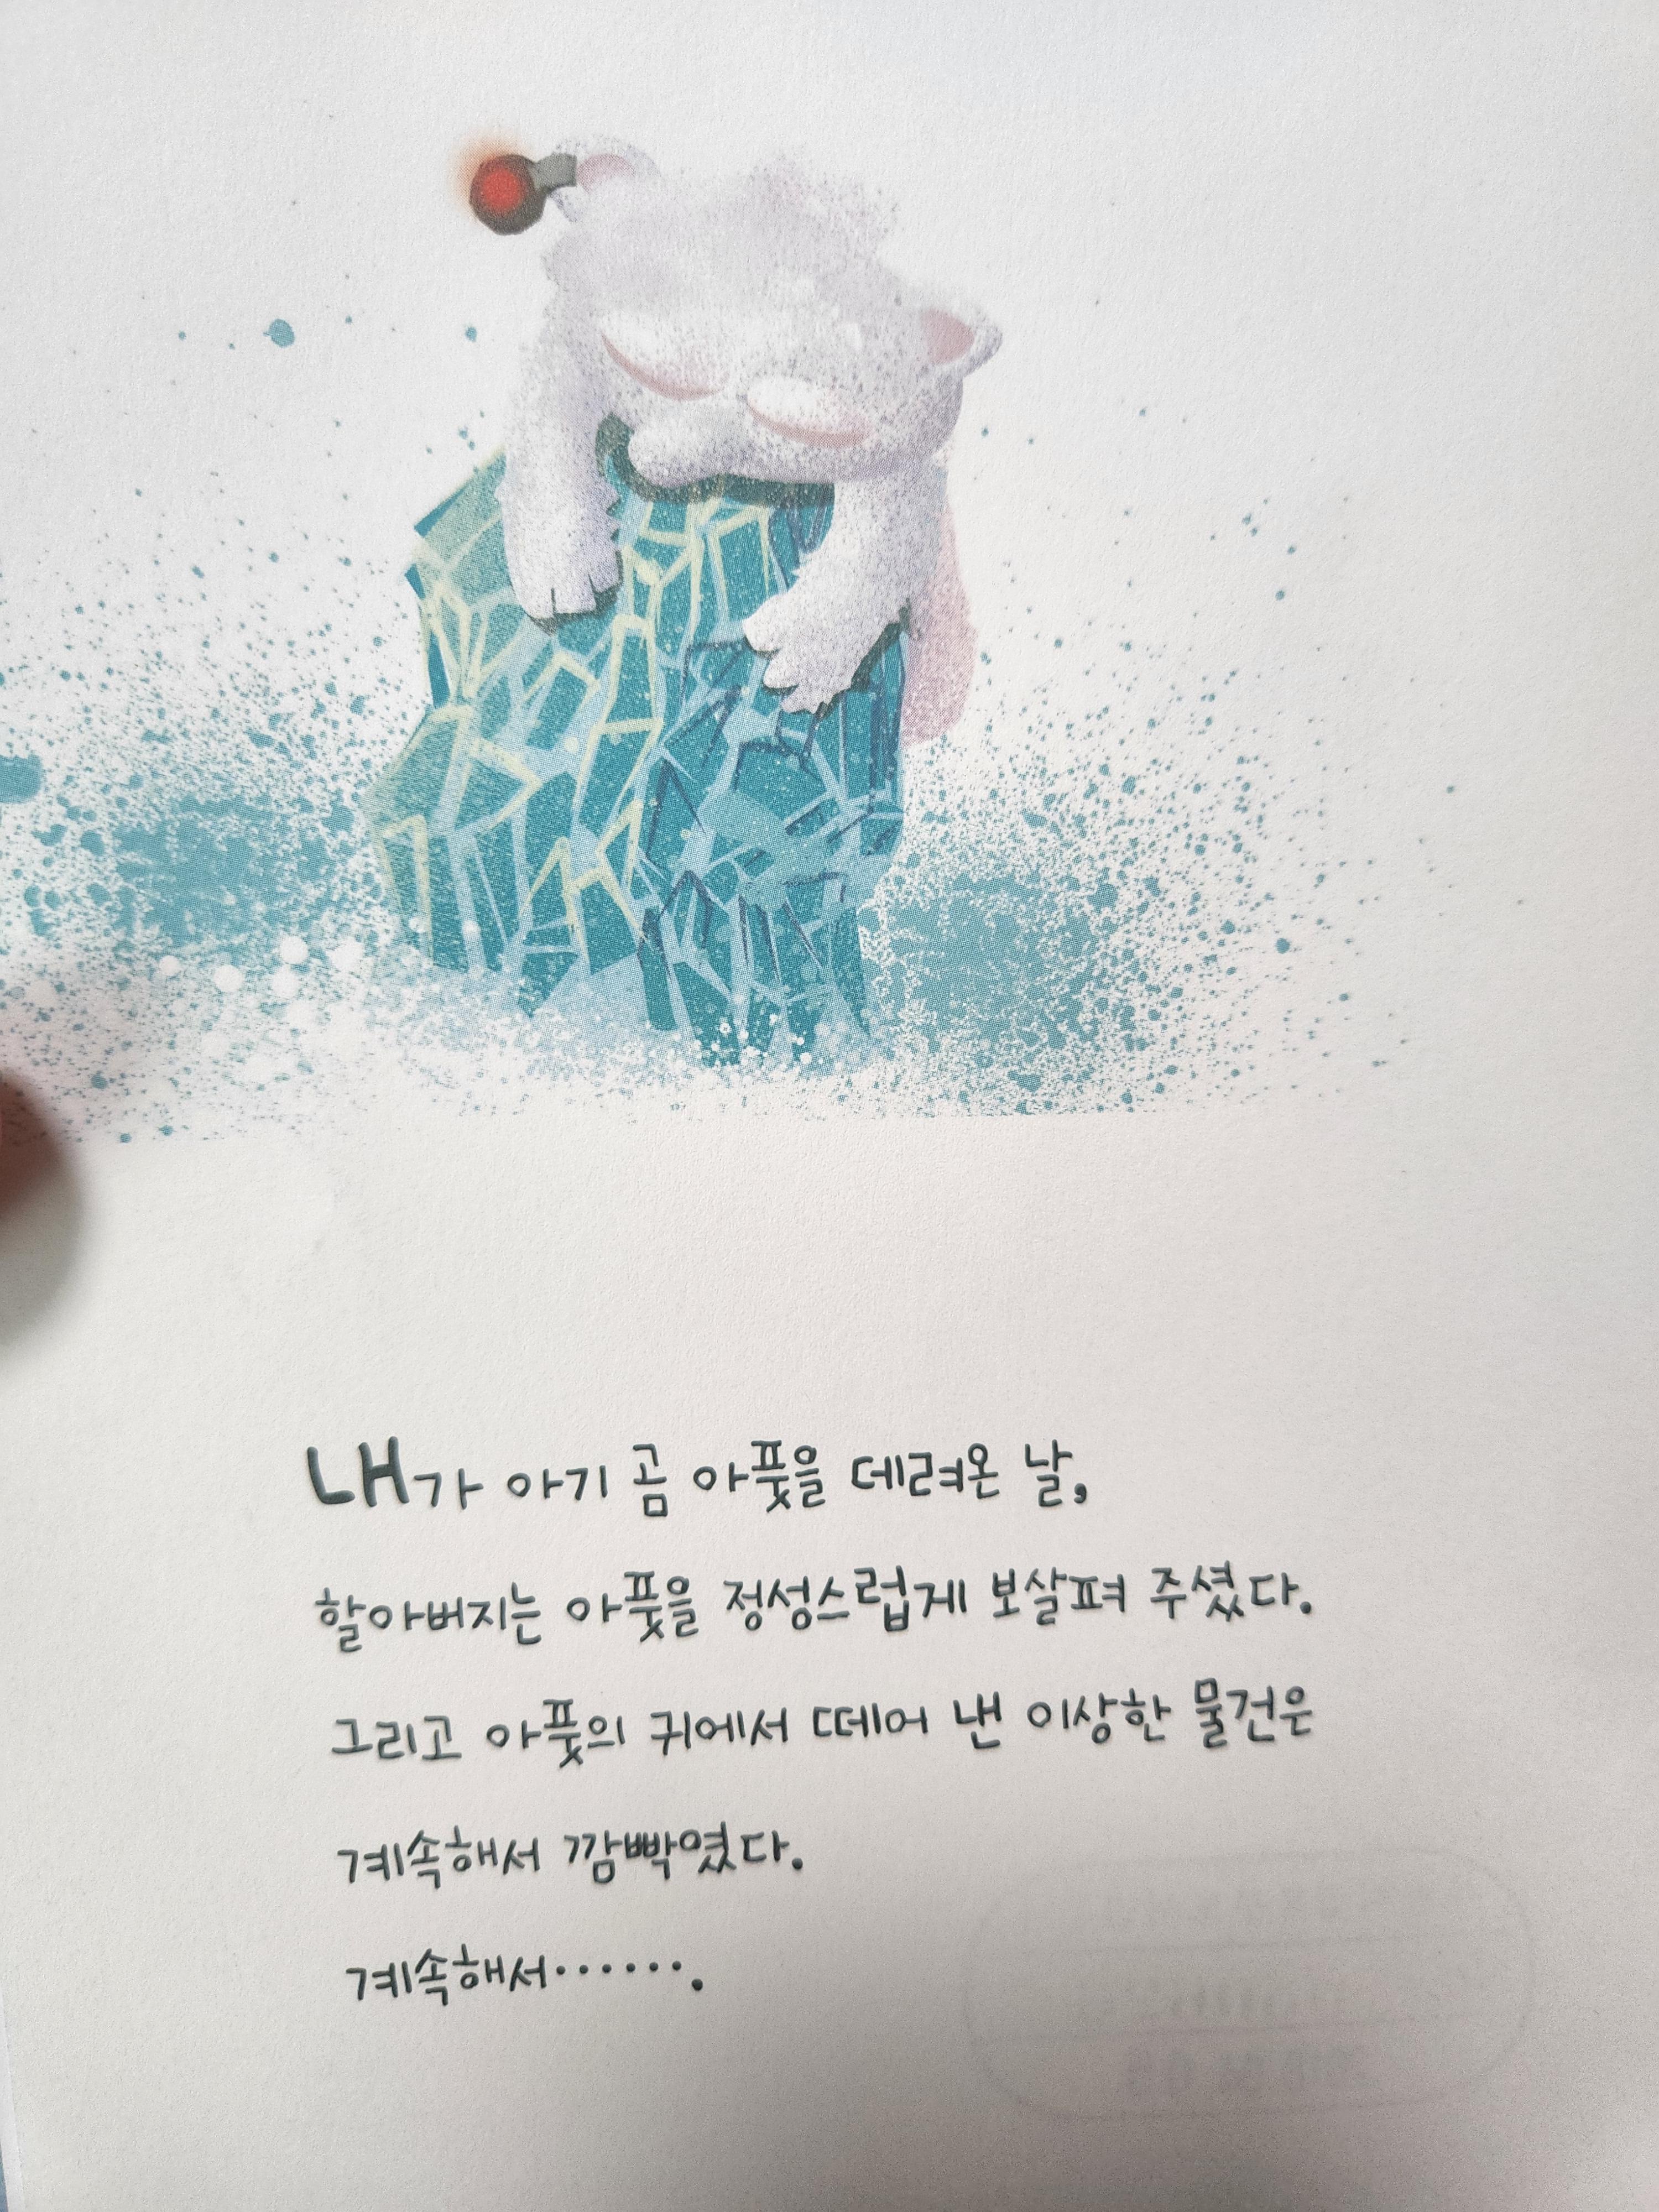 내가 아기 곰 아풋을 데려온 날,
할아버지는 아풋을 정성스럽게 보살펴 주셨다.
그리고 아풋의 귀에서 떼어 낸 이상한 물건은
계속해서 깜빡였다.
계속해서…….